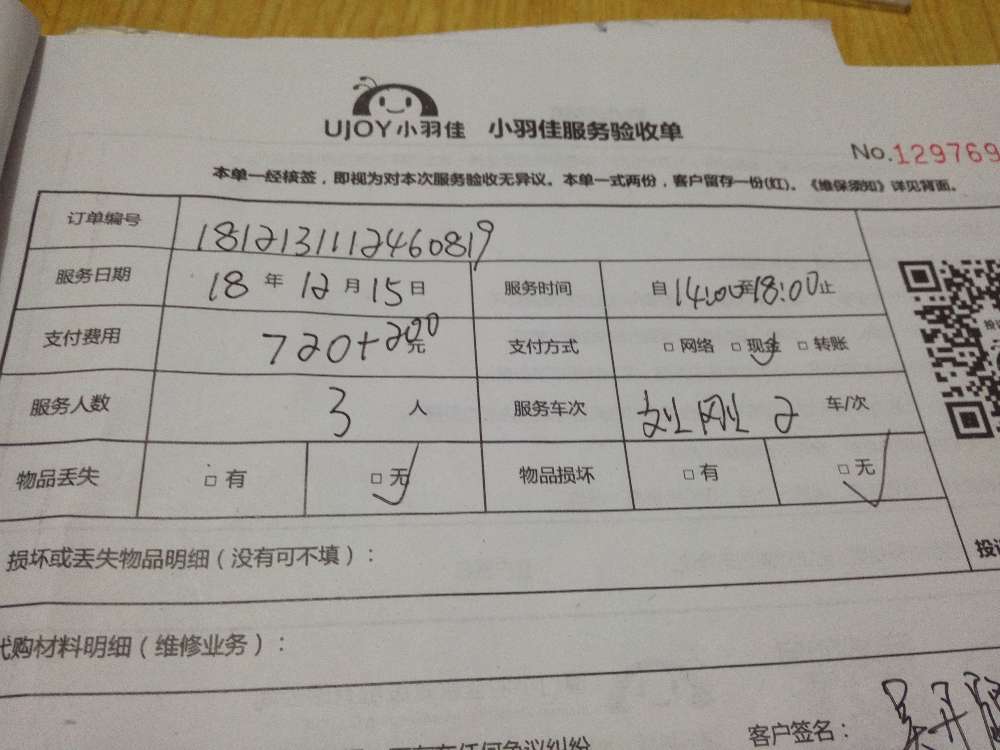 UJOY小羽佳 小羽佳服务验收单
No.129769
本单一经核签，即视为对本次服务验收无异议。本单一式两份，客户留存一份(红)。《维保须知》详见背面。
订单编号 1812131112460819
服务日期 18 年 12 月 15 日 服务时间 自 14:00 至 18:00 止
支付费用 720+200 元 支付方式 □ 网络 □ 现金 □ 转账
服务人数 3 人 服务车次 刘刚 2 车/次
物品丢失 □ 有 □ 无 物品损坏 □ 有 □ 无
损坏或丢失物品明细（没有可不填）：
代购材料明细（维修业务）：
客户签名：
任何争议纠纷